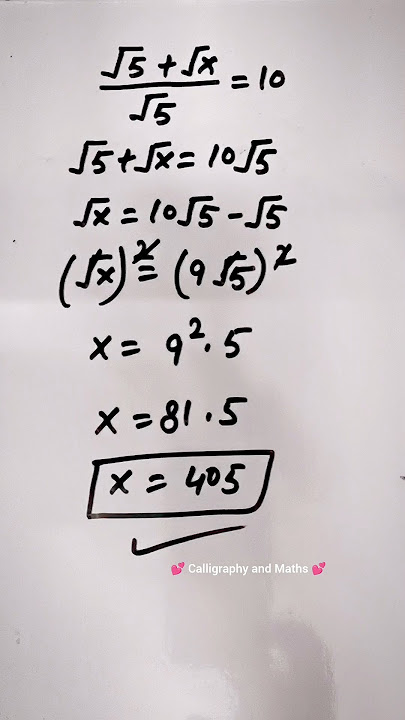 (√5 + √x)/√5 = 10
√5 + √x = 10√5
√x = 10√5 - √5
(√x)² = (9√5)²
x = 9² . 5
x = 81 . 5
x = 405
💕 Calligraphy and Maths 💕